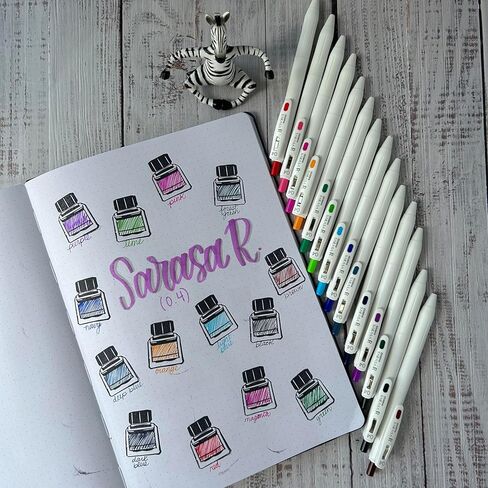 pink
purple
lime
forest
green
Sarasa R.
(0.4)
navy
brown
light
blue
black
orange
deep blue
magenta
green
dark
blue
red